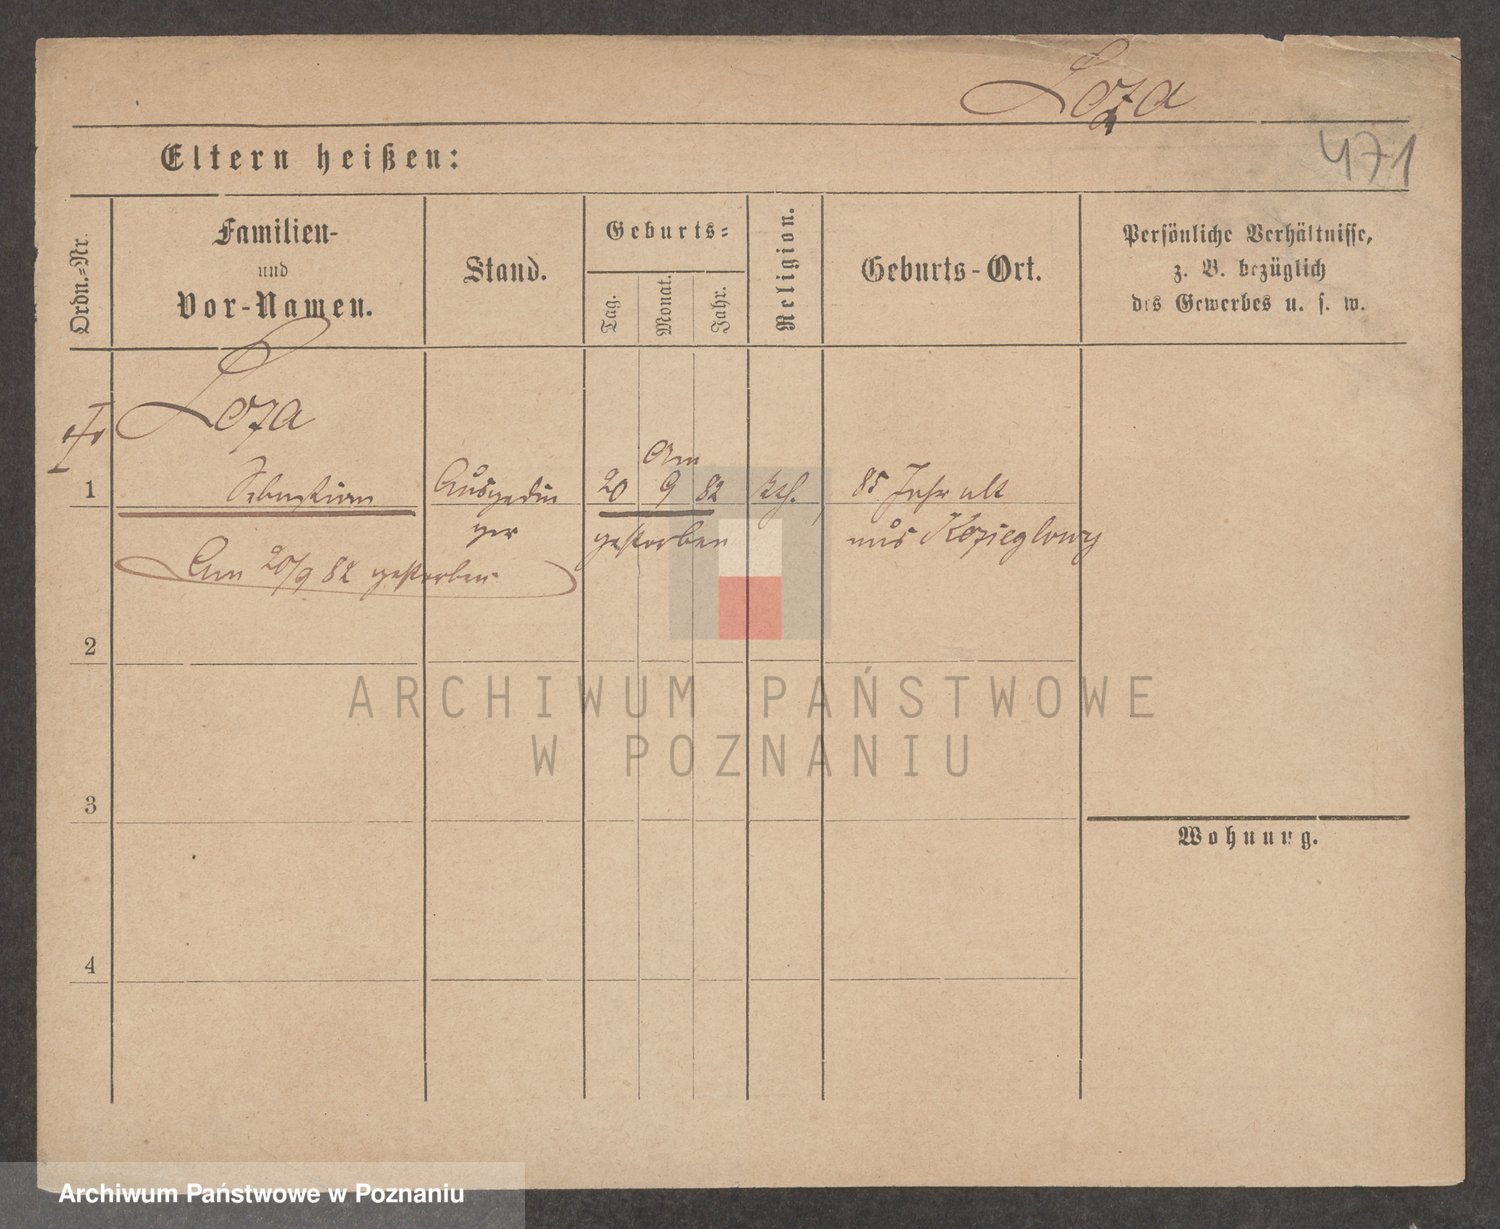 Loza
471
Eltern heißen:
Ordn.-Nr.
Familien-
und
Vor-Namen.
Stand.
Geburts-
Tag.
Monat.
Jahr.
Religion.
Geburts-Ort.
Persönliche Verhältnisse,
z. B. bezüglich
des Gewerbes u. s. w.
Loza
1
Sebastian
Ausgedin
ger
Am
20 9 82
gestorben
kth.
85 Jahr alt
aus Kozieglowy
Am 20/9 82 gestorben
2
ARCHIWUM PAŃSTWOWE
W POZNANIU
3
Wohnung.
4
Archiwum Państwowe w Poznaniu